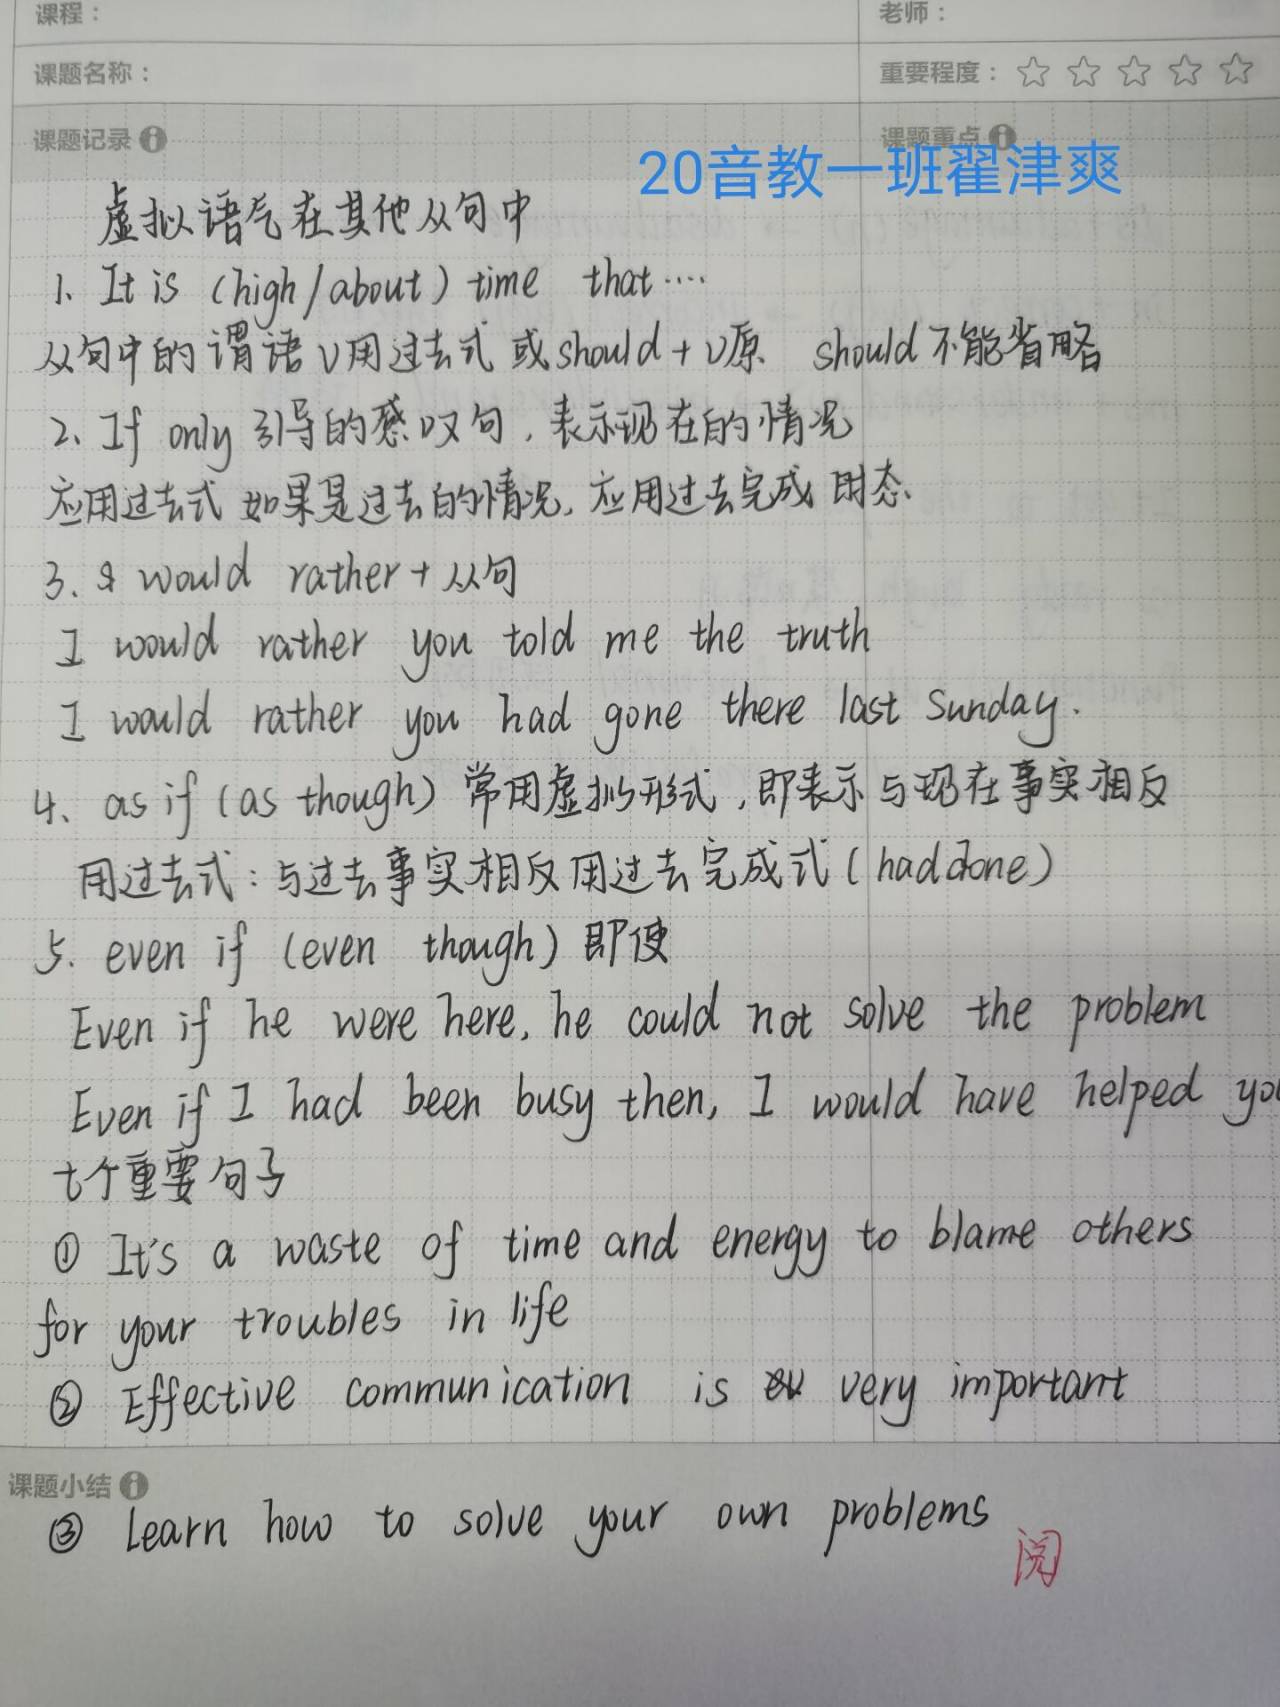 课程：
老师：
课题名称：
重要程度：☆ ☆ ☆ ☆ ☆
课题记录
课题重点
20音教一班翟津爽
虚拟语气在其他从句中
1、It is (high/about) time that····
从句中的谓语V用过去式 或should+V原、should不能省略
2、If only 引导的感叹句，表示现在的情况
应用过去式 如果是过去的情况，应用过去完成时态、
3、would rather+从句
I would rather you told me the truth
I would rather you had gone there last Sunday.
4、as if (as though) 常用虚拟形式，即表示与现在事实相反
用过去式：与过去事实相反用过去完成式(had done)
5. even if (even though) 即使
Even if he were here, he could not solve the problem
Even if I had been busy then, I would have helped you
七个重要句子
① It's a waste of time and energy to blame others
for your troubles in life
② Effective communication is very important
课题小结
③ Learn how to solve your own problems
阅